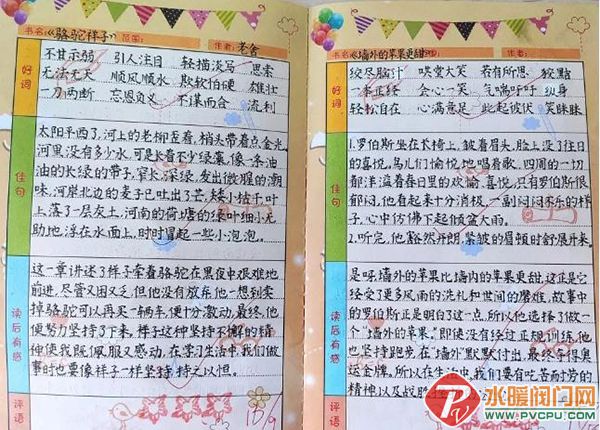 书名:《骆驼祥子》
作者:老舍
好词
不甘示弱 引人注目 轻描淡写 思索
无法无天 顺风顺水 欺软怕硬 雄壮
一刀两断 忘恩负义 不谋而合 流利
佳句
太阳平西了,河上的老柳歪着,梢头带着点金光。
河里没有多少水,可是长着不少绿藻,像一条油
油的长绿的带子,窄长,深绿,发出微腥的潮
味。河岸北边的麦子已吐出了芒,矮小枯干,叶
上落了一层灰土,河南的荷塘的绿叶细小无
助地浮在水面上,时时冒起一些小泡泡。
读后有感
这一章讲述了祥子牵着骆驼在黑夜中艰难地
前进,尽管又困又乏,但他没有放弃,他一想到卖
掉骆驼可以再买一辆车,便十分激动,最终,他
便努力坚持了下来。祥子这种坚持不懈的精
神使我既佩服又感动,在学习生活中,我们做
事时也要像祥子一样坚持,持之以恒。
评语
书名:《墙外的苹果更甜》
作者:
好词
绞尽脑汁 哄堂大笑 若有所思 狡黠
一本正经 会心一笑 气喘吁吁 纵身
轻松自在 心满意足 此起彼伏 笑眯眯
佳句
1.罗伯斯坐在长椅上,皱着眉头,脸上没了往日
的喜悦,鸟儿们愉悦地唱着歌,四周的一切
都洋溢着春日里的欢愉、喜悦,只有罗伯斯很
郁闷,他看起来十分消极,一副闷闷不乐的样
子,心中仿佛下起倾盆大雨。
2.听完,他豁然开朗,紧皱的眉頭时舒展开来。
读后有感
是呀,墙外的苹果比墙内的苹果更甜,这正是它
经受了更多风雨的洗礼和世间的磨难,故事中
的罗伯斯正是明白了这一点,所以他选择了做一
个"墙外的苹果。"即使没有经过正规训练,他
也坚持跑步,在"墙外"默默付出,最终夺得奥
运金牌。所以在生活中,我们要有吃苦耐劳的
精神以及战胜
评语
水暖阀门网
WWW.PVCPU.COM